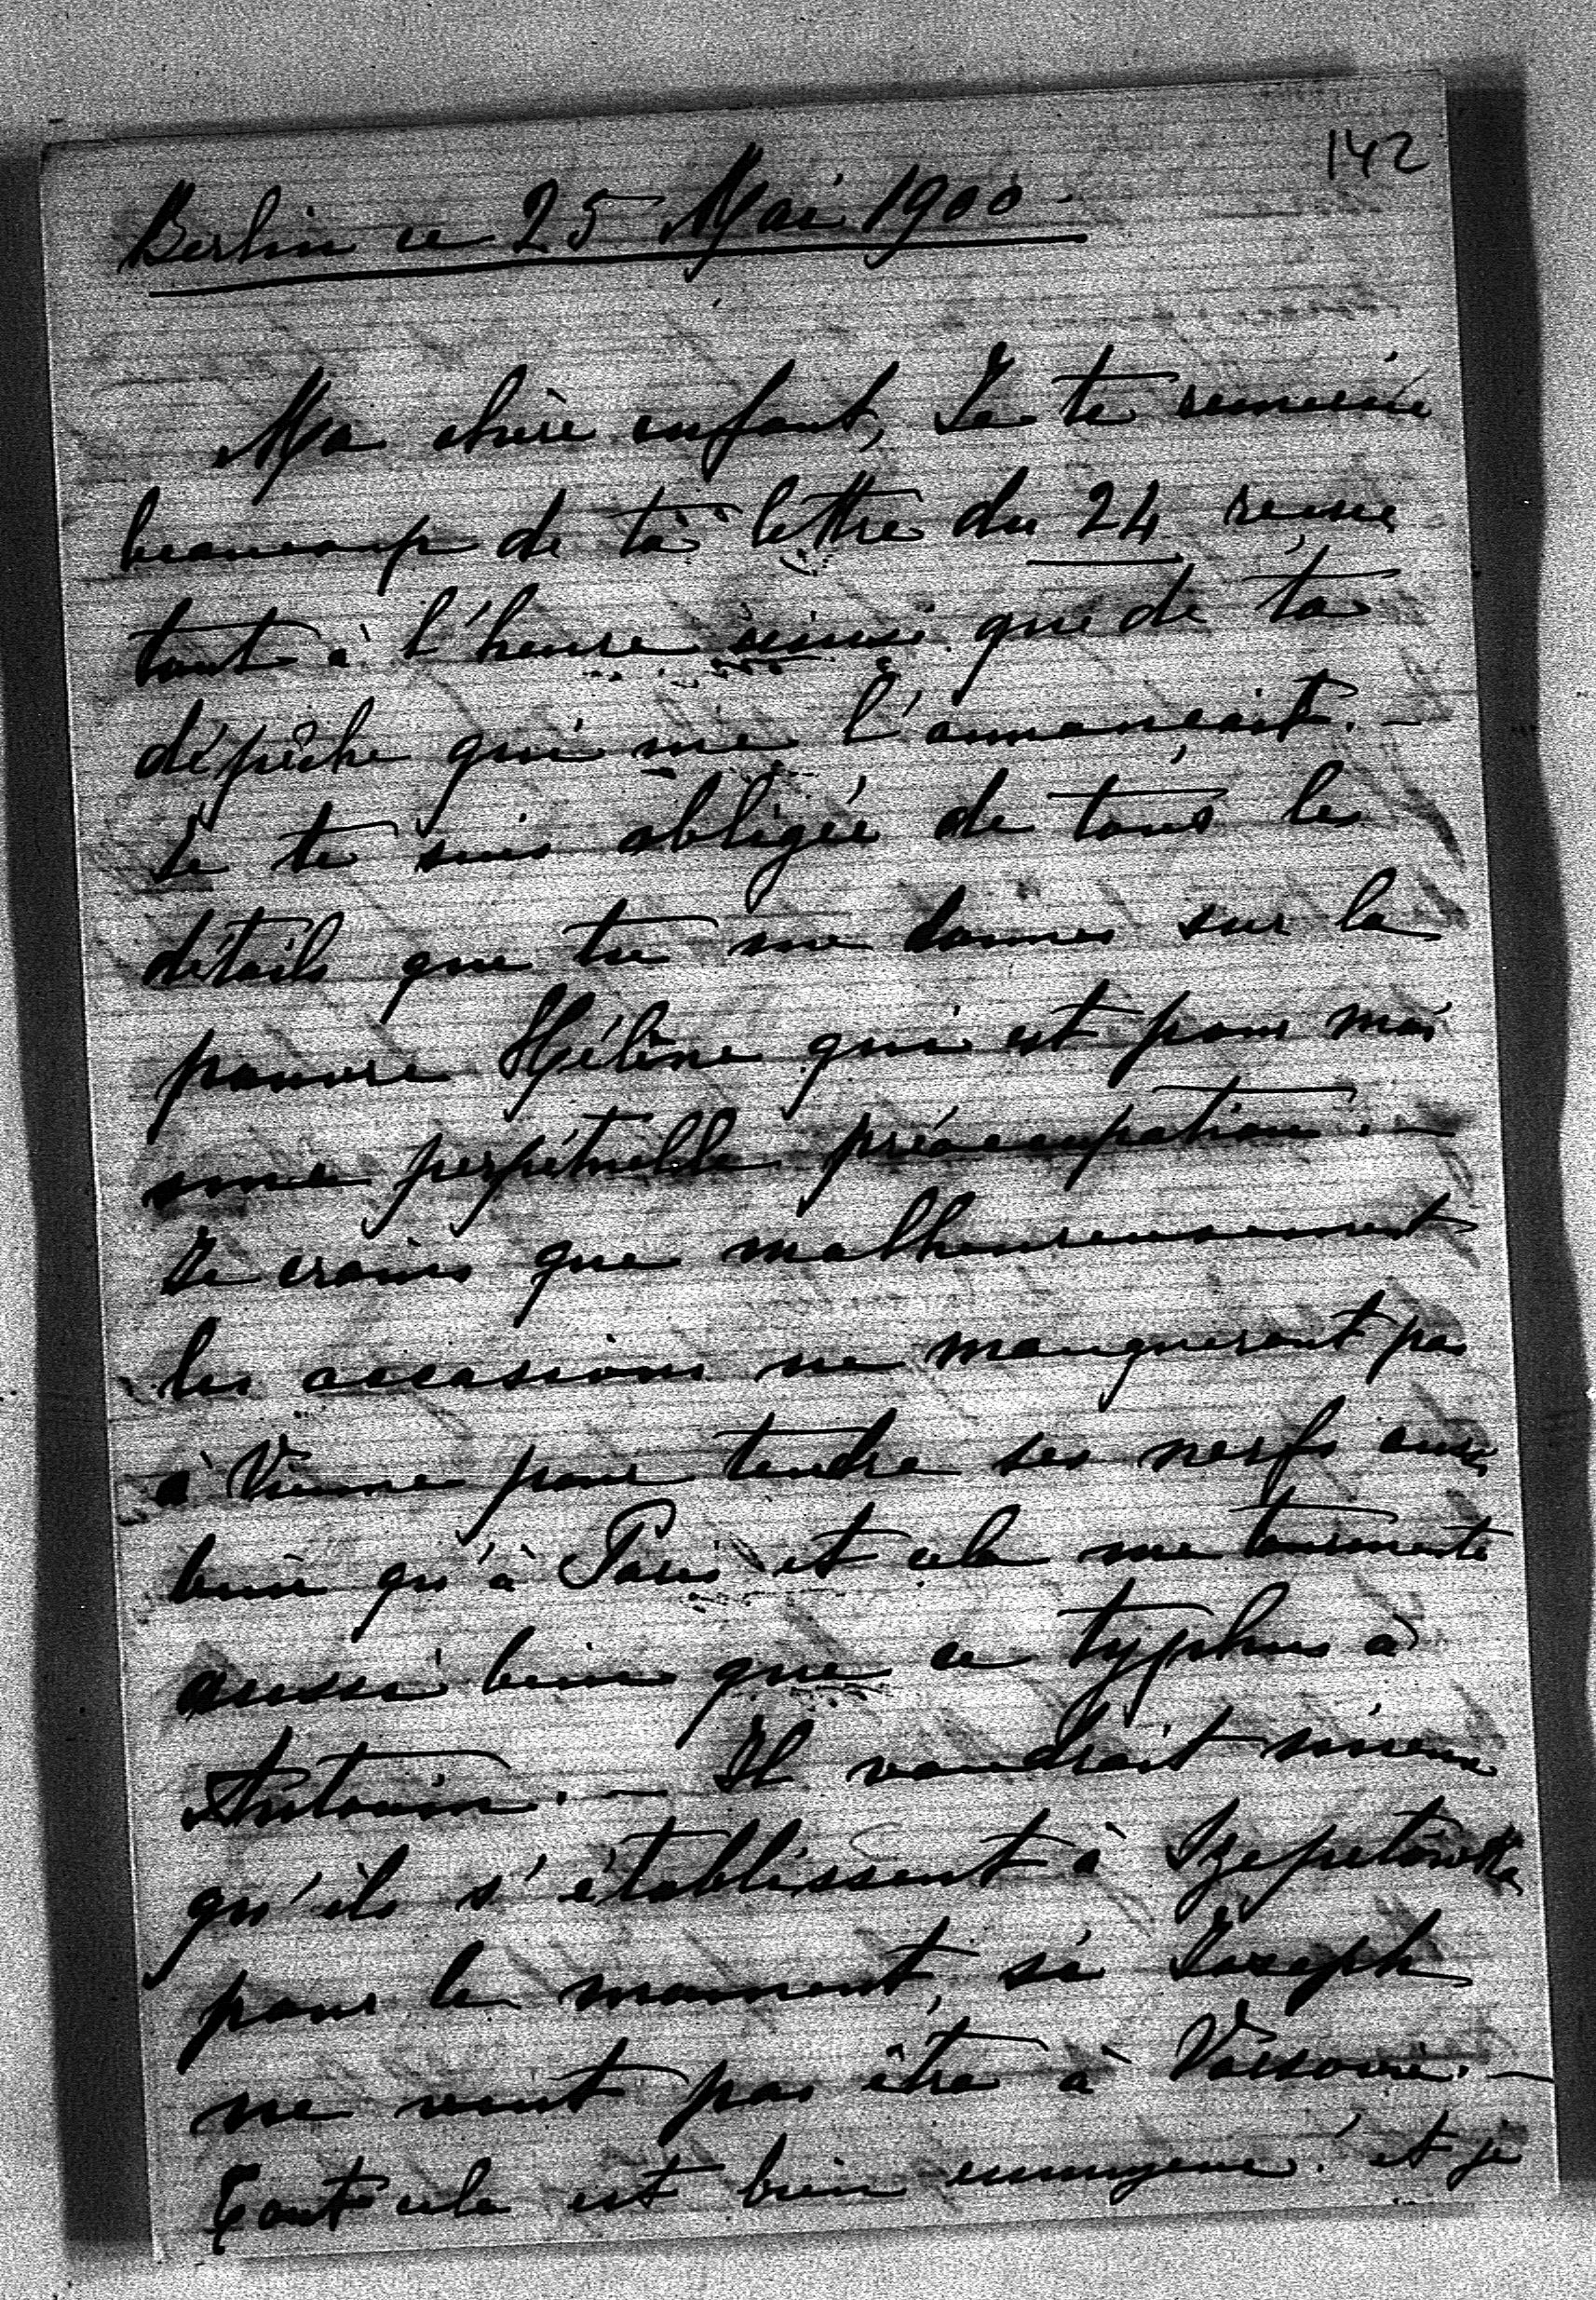 142
Berlin ce 25 Mai 1900.
Ma chère enfant, Je te remercie
beaucoup de ta lettre du 24 reçue
tout à l'heure ainsi que de ta
dépêche qui me l'annonçait. –
Je te suis obligée de tous les
détails que tu me donnes sur la
pauvre Hélène qui est pour moi
une perpétuelle préoccupation. –
Je crains que malheureusement
les occasions ne manqueront pas
à Vienne pour tendre ses nerfs aussi
bien qu'à Paris et cela me tourmente
aussi bien que ce typhus à
Antonin. – Il vaudrait mieux
qu'ils s'établissent à Szepetówka
pour le moment, si Joseph
ne veut pas être à Varsovie. –
Tout cela est bien ennuyeux! et je